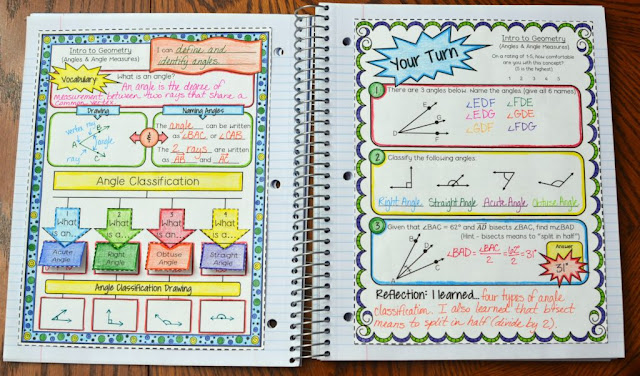 Intro to Geometry
(Angles & Angle Measures)
I can define and
identify angles.
Vocabulary
What is an angle?
An angle is the degree of
measurement between two rays that share a
common vertex.
Drawing
vertex
ray
B
A
angle
ray
C
Naming Angles
The angle can be written
as ∠BAC or ∠CAB.
The 2 rays are written
as AB and AC
Angle Classification
1
What
is an...
2
What
is a...
3
What
is an...
4
What
is a...
Acute
Angle
Right
Angle
Obtuse
Angle
Straight
Angle
Angle Classification Drawing
Your Turn
Intro to Geometry
(Angles & Angle Measures)
On a rating of 1-5, how comfortable
are you with this concept?
(5 is the highest)
1 2 3 4 5
1
There are 3 angles below. Name the angles (give all 6 names).
E
F
D
G
∠EDF ∠FDE
∠EDG ∠GDE
∠GDF ∠FDG
2
Classify the following angles:
Right Angle Straight Angle Acute Angle Obtuse Angle
3
Given that ∠BAC = 62° and AD bisects ∠BAC, find m∠BAD
(Hint - bisects means to "split in half")
B
D
C
A
∠BAD = ∠BAC/2 = 62°/2 = 31°
Answer
31°
Reflection: I learned... four types of angle
classification. I also learned that bisect
means to split in half (divide by 2).